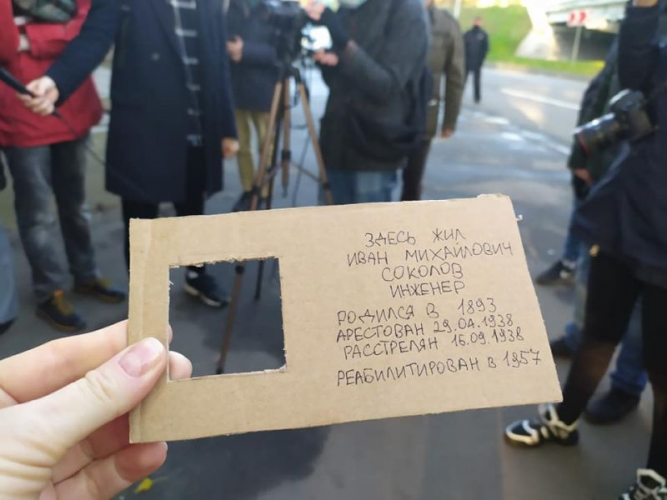 ЗДЕСЬ ЖИЛ
ИВАН МИХАЙЛОВИЧ
СОКОЛОВ
ИНЖЕНЕР
РОДИЛСЯ В 1893
АРЕСТОВАН 29.04.1938
РАССТРЕЛЯН 16.09.1938
РЕАБИЛИТИРОВАН В 1957